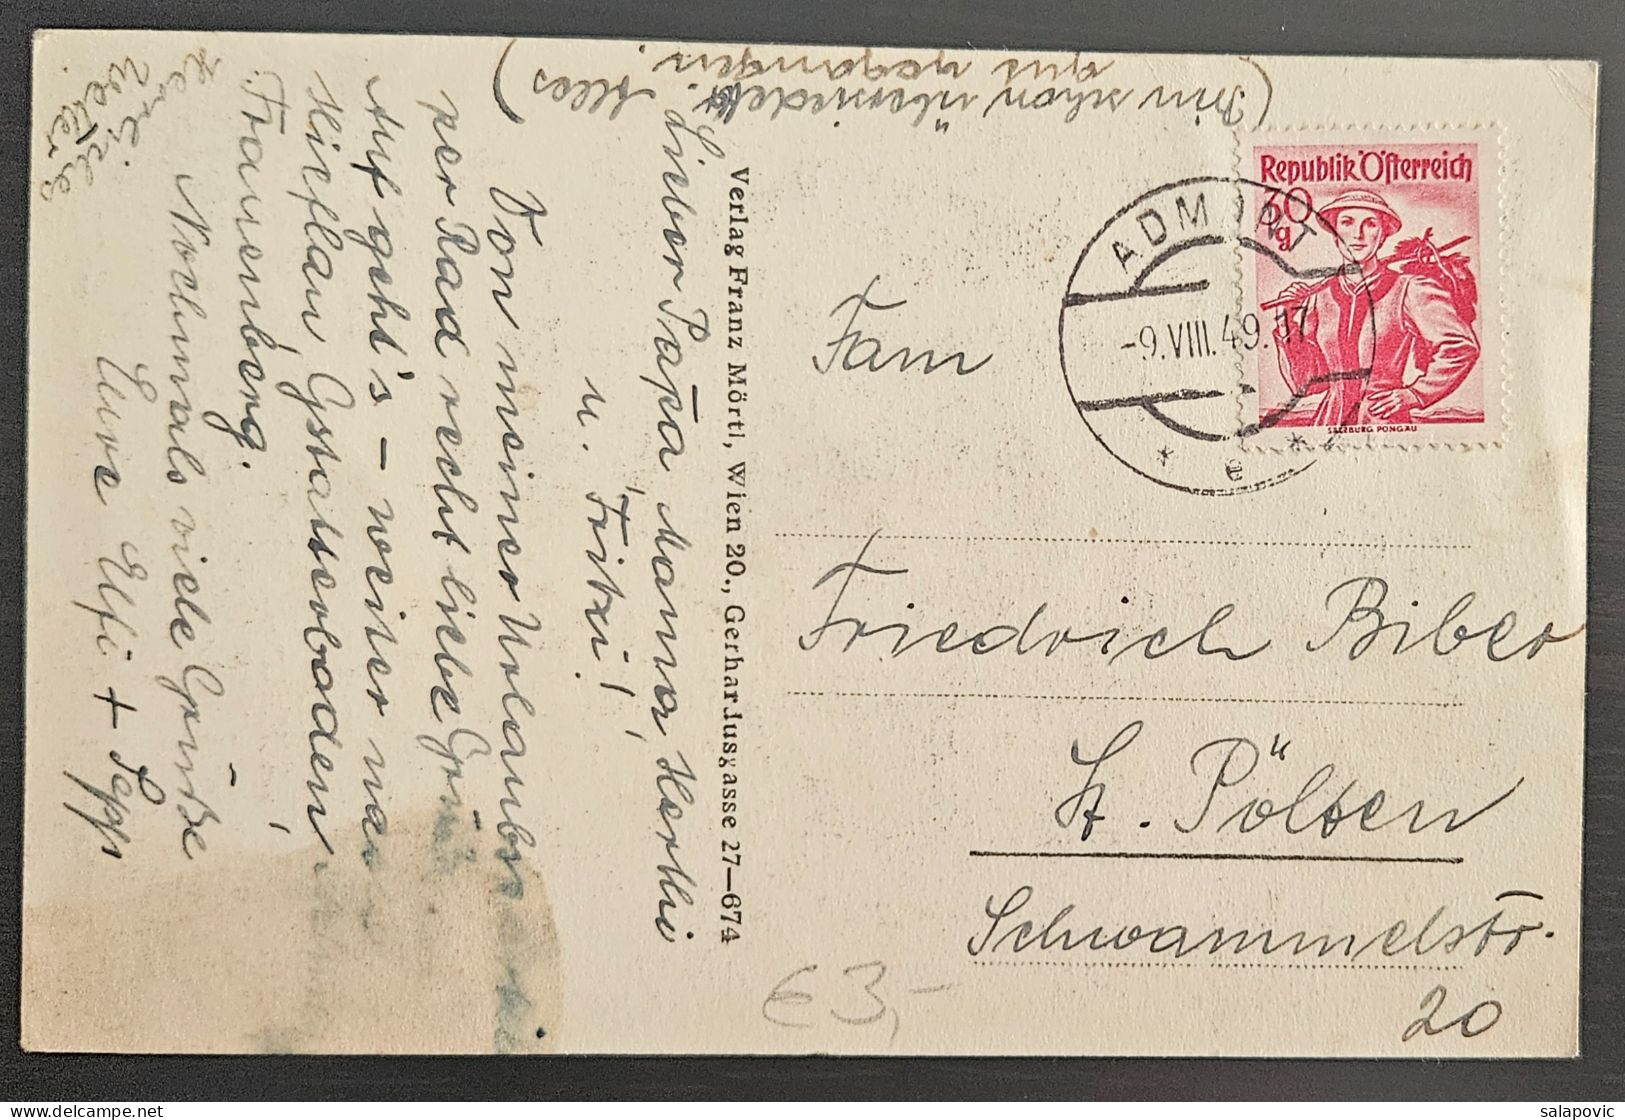 Lieber Papa, Mama, Herthi
u. Fritzi!
Von meiner Urlaubs
per Rad recht liebe Grüße
Auf geht's – weiter nach
Hieflau, Gstatterboden,
Frauenberg.
Nochmals viele Grüße
Eure Elfi + Sepp
(Bin schon übersiedelt. Alles
gut gegangen.)
Verlag Franz Mörtl, Wien 20., Gerhardusgasse 27—674
Republik Österreich
30
g
SALZBURG PONGAU
ADMONT
-9.VIII.49.17
* e *
Fam
Friedrich Biber
St. Pölten
Schwammelstr.
20
€ 3,-
salapovic